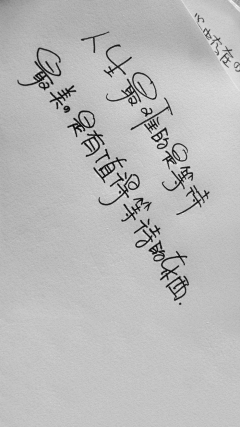 人生最难的是等待
最美的是有值得等待的东西.